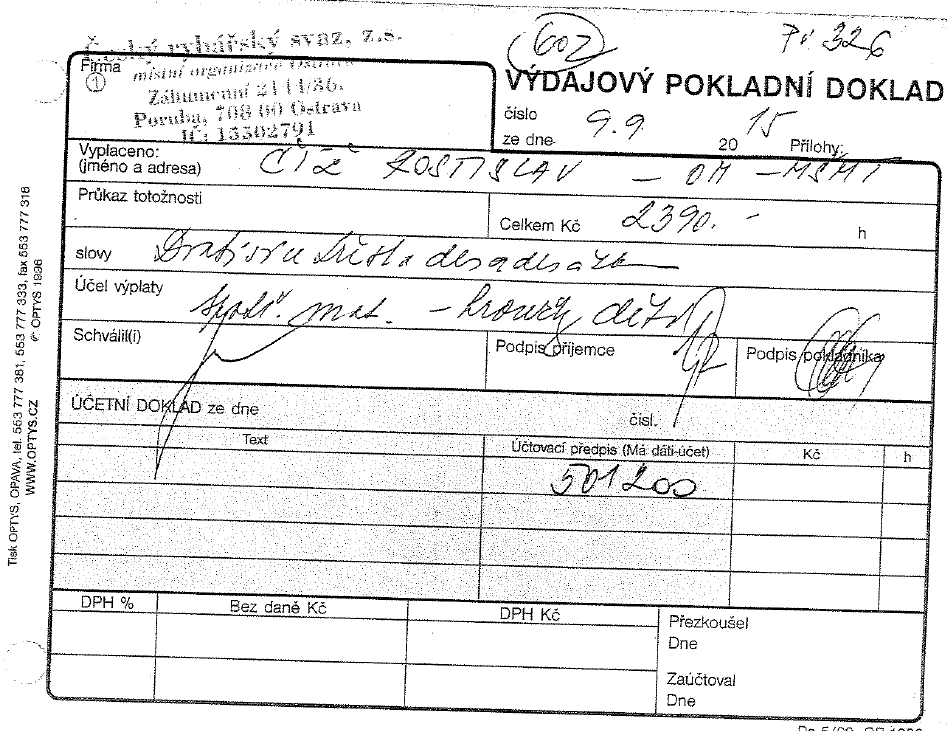 Český rybářský svaz, z.s.
602
Pv 326
Firma
místní organizace Ostrava
1
Záhumenní 2144/86,
Poruba, 708 00 Ostrava
IČ: 15502791
VÝDAJOVÝ POKLADNÍ DOKLAD
číslo
ze dne 9.9. 20 15 Přílohy:
Vyplaceno:
(jméno a adresa) ČÍŽ ROSTISLAV – OM – MŠMT
Průkaz totožnosti
Celkem Kč 2390.- h
slovy
Účel výplaty
spotř. mat. – kroužky dětí
Schválil(i)
Podpis příjemce
Podpis pokladníka
ÚČETNÍ DOKLAD ze dne čísl.
Text Účtovací předpis (Má dáti-účet) Kč h
501200
DPH % Bez daně Kč DPH Kč
Přezkoušel
Dne
Zaúčtoval
Dne
Tisk OPTYS, OPAVA, tel. 553 777 381, 553 777 333, fax 553 777 316
WWW.OPTYS.CZ © OPTYS 1996